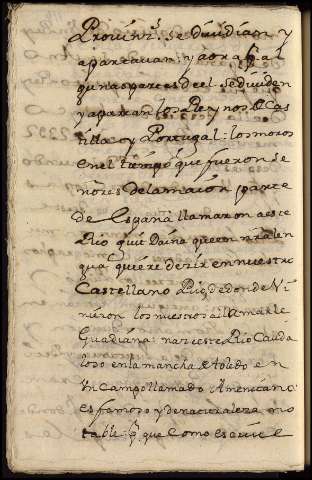 Provinz.s se diuidian y
apartauan: y aora p.r al
gunas partes deel se diuiden
y apartan los Reynos de Cas
tilla y Portugal: los moros
en el tiempo q.e fueron se
ñores de la maior parte
de España llamaron a este
Rio quit Daina que en su len
gua quiere dezir en nuestro
Castellano Rio, de donde vi
nieron los nuestros a llamarle
Guadiana: naze este Rio Cauda
loso en la mancha de toledo en
vn Campo llamado
es famoso y de naturaleza no
table: p.r que como escriue